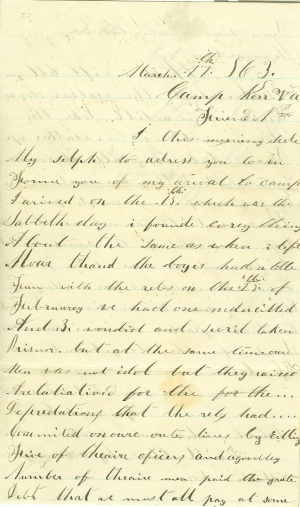 March 17th 1863.
Camp Kerr Va
Friend
I this morning seete
My selph to adress you to in
Forme you of my arival to camp
I arived on the 15th which was the
Sabbeth day i founde every thing
About the same as when i left
the boyes had a little
Fun with the rebs on the 25th of
February we had one man cilled
And 3 wondid and taken
Prisnor. but at the same time our
Men was not idol but they raised
A retaliation for the for the...
Depredations that the rebs had....
Committed on oure oute lines by cilling
Five of theaire oficers and a goodley
Number of theaire men paid the grate
Debt that we must all pay at some